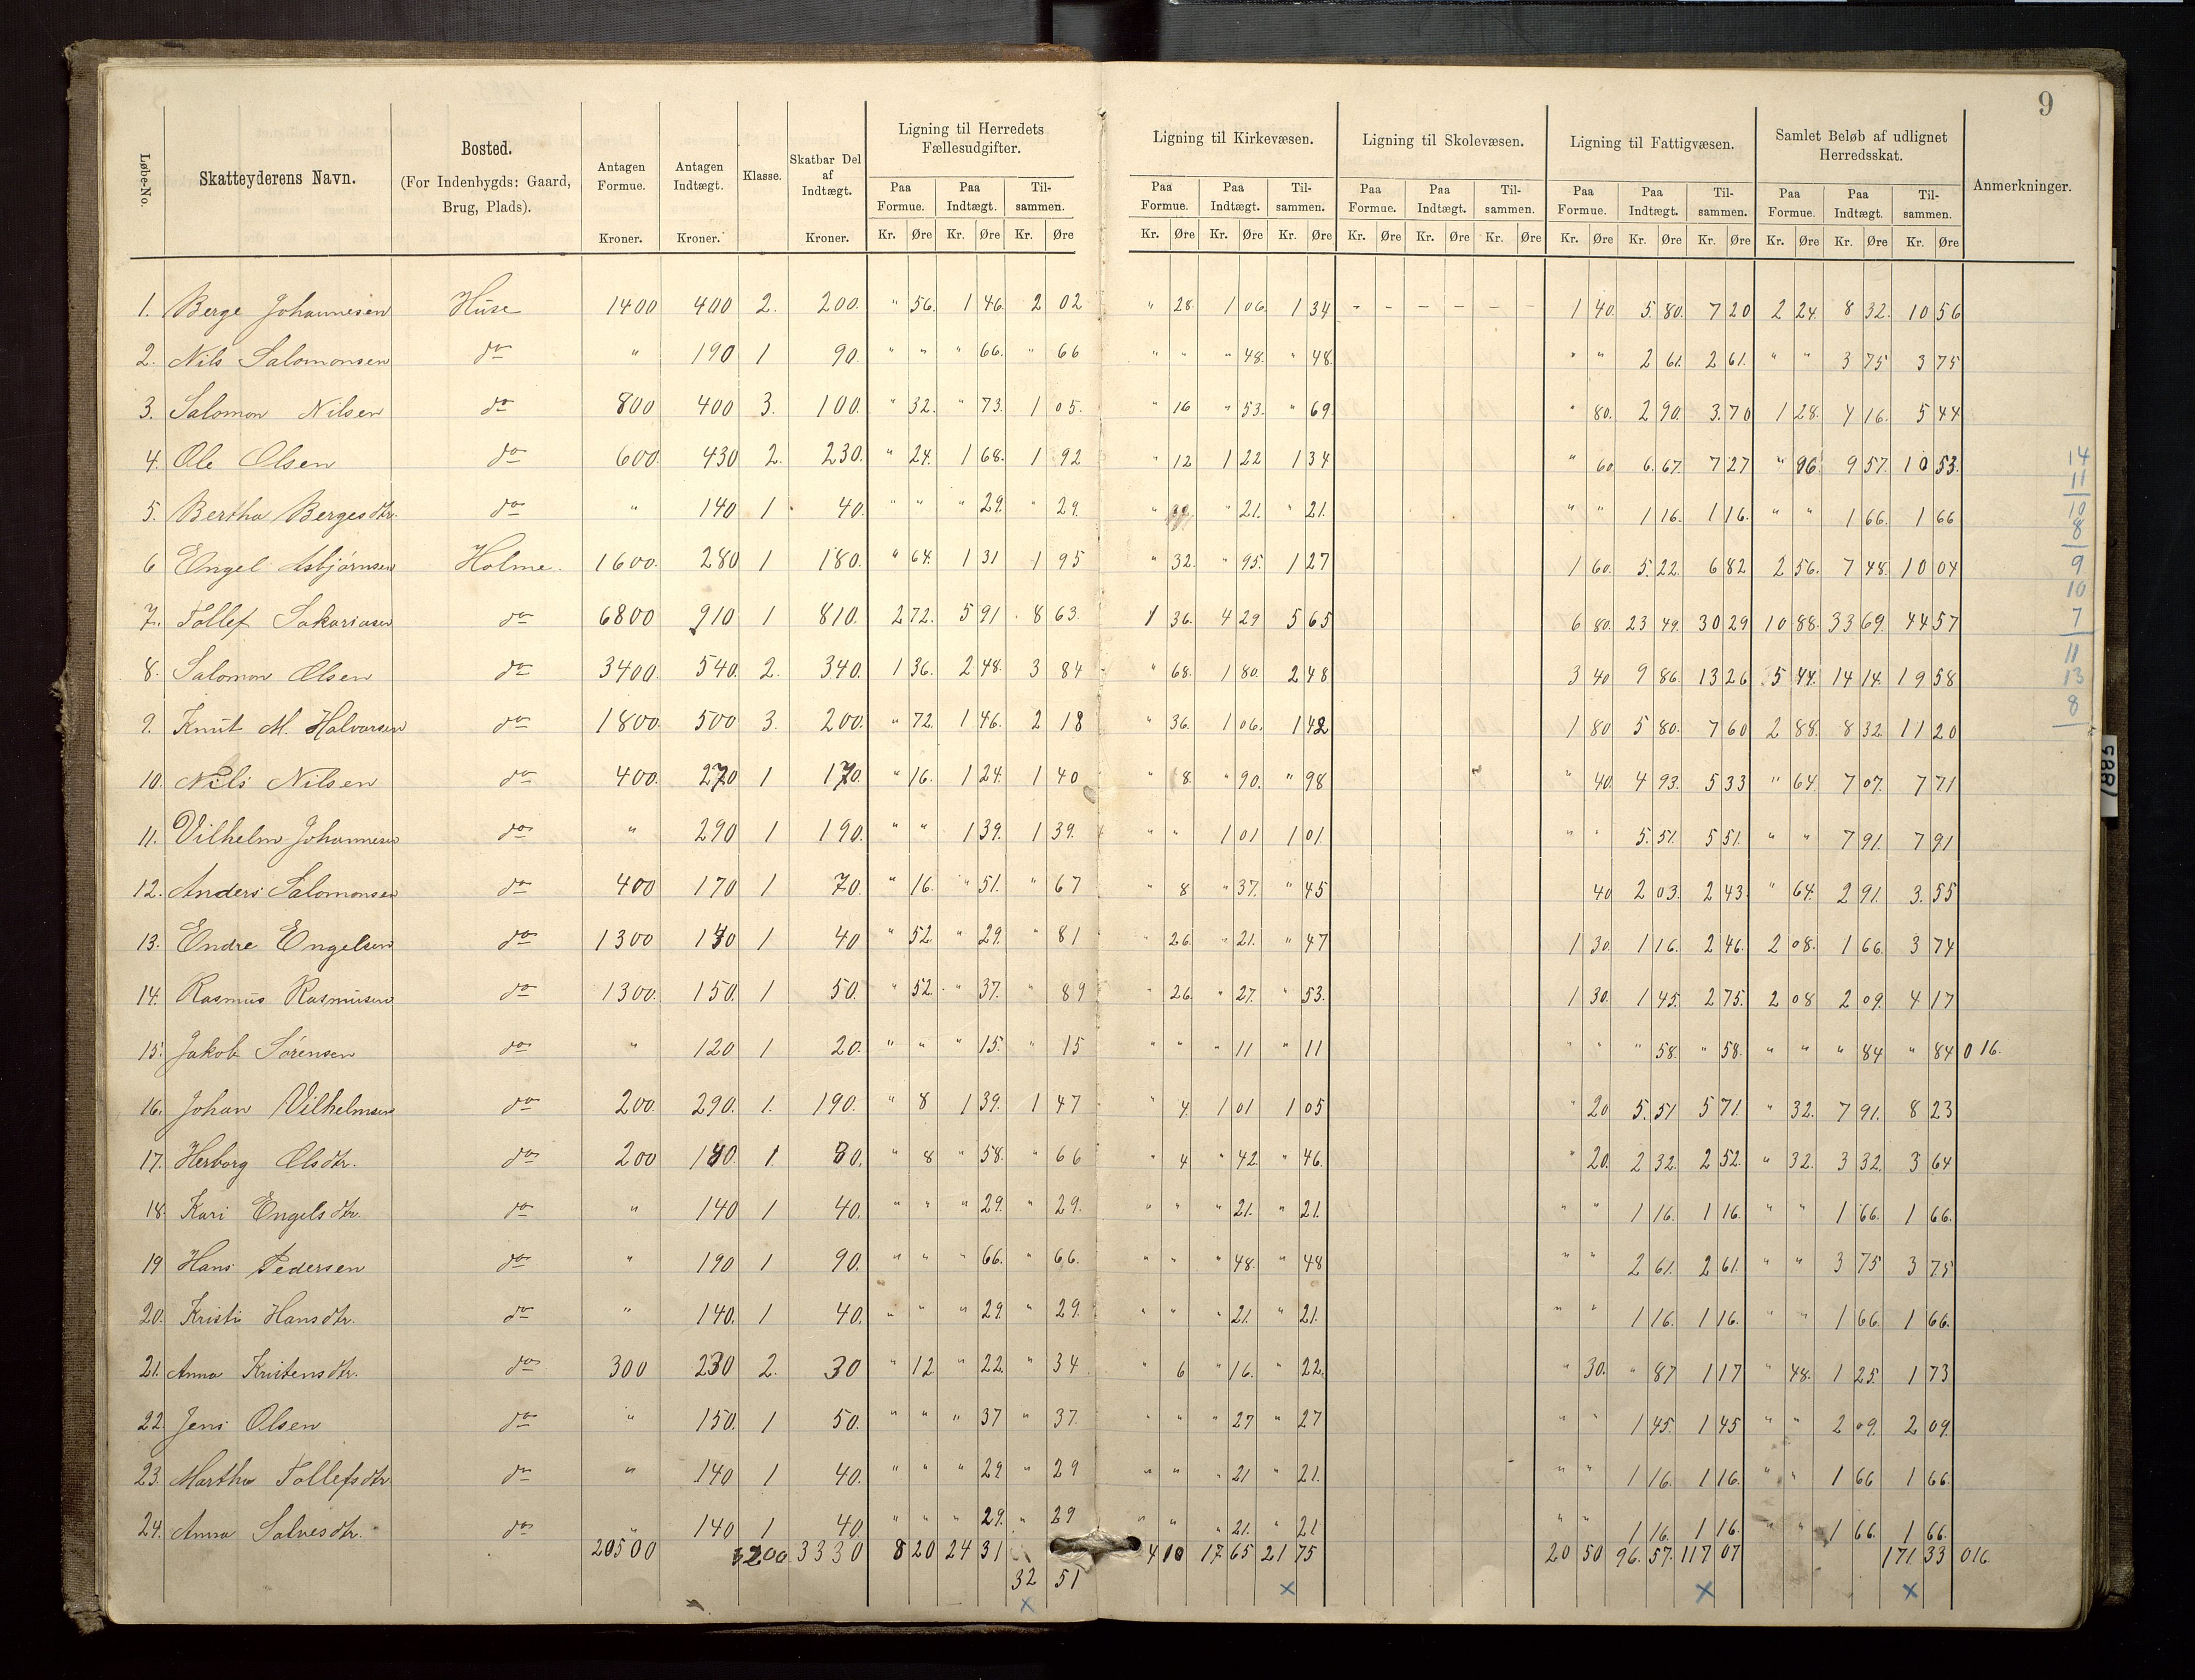 9
Løbe-No. Skatteyderens Navn. Bosted. (For Indenbygds: Gaard, Brug, Plads). Antagen Formue. Kroner. Antagen Indtægt. Kroner. Klasse. Skatbar Del af Indtægt. Kroner. Ligning til Herredets Fællesudgifter. Ligning til Kirkevæsen. Ligning til Skolevæsen. Ligning til Fattigvæsen. Samlet Beløb af udlignet Herredsskat. Anmerkninger.
Paa Formue. Paa Indtægt. Til-sammen. Paa Formue. Paa Indtægt. Til-sammen. Paa Formue. Paa Indtægt. Til-sammen. Paa Formue. Paa Indtægt. Til-sammen. Paa Formue. Paa Indtægt. Til-sammen.
Kr. Øre Kr. Øre Kr. Øre Kr. Øre Kr. Øre Kr. Øre Kr. Øre Kr. Øre Kr. Øre Kr. Øre Kr. Øre Kr. Øre Kr. Øre Kr. Øre Kr. Øre
1. Berge Johannesen Huse 1400 400 2. 200. " 56. 1 46. 2 02 " 28. 1 06. 1 34 - - - - - - 1 40. 5. 80. 7 20 2 24. 8 32. 10 56
2. Nils Salomonsen do " 190 1 90. " " " 66. " 66 " " " 48. " 48. " " 2 61. 2 61. " " 3 75 3 75
3. Salomon Nilsen do 800 400 3. 100. " 32. " 73. 1 05. " 16 " 53. " 69. " 80. 2 90. 3. 70 1 28. 4 16. 5 44
4. Ole Olsen do 600. 430 2. 230. " 24. 1 68. 1 92 " 12 1 22 1 34 " 60. 6. 67. 7 27 " 96. 9 57. 10 53.
5. Bertha Bergesdtr. do " 140 1 40. " " " 29. " 29. " " 21. " 21. " " 1 16. 1 16. " " 1 66. 1 66
6 Engel Asbjørnsen Holme. 1600. 280 1 180. " 64. 1 31 1 95 " 32. " 95. 1 27 1 60. 5. 22. 6 82 2 56. 7 48. 10 04
7. Tollef Sakariasen do 6800 910 1 810. 2 72. 5 91 8 63. 1 36. 4 29 5 65 6 80. 23 49. 30 29 10 88. 33 69. 44 57
8. Salomon Olsen do 3400. 540. 2. 340. 1 36. 2 48. 3 84 " 68. 1 80. 2 48 3 40 9 86. 13 26 5 44. 14 14. 19 58
9. Knut M. Halvorsen do 1800. 500 3. 200. " 72. 1 46. 2 18 " 36. 1 06. 1 42 1 80 5 80. 7 60 2 88. 8 32 11 20
10. Nils Nilsen do 400. 270 1 170. " 16. 1 24. 1 40 " 8. " 90. " 98 " 40. 4 93. 5 33 " 64. 7 07. 7 71
11. Vilhelm Johannesen do " 290 1 190. " " 1 39. 1 39. " " 1 01 1 01. " " 5. 51. 5 51. " " 7 91. 7 91
12. Anders Salomonsen do 400 170 1 70. " 16. " 51. " 67 " 8 " 37. " 45 40 2 03. 2 43. " 64. 2 91. 3. 55
13. Endre Engelsen do 1300 140 1 40 " 52. " 29. " 81 " 26. " 21. " 47 1 30. 1 16. 2 46. 2 08. 1 66. 3 74
14. Rasmus Rasmusen do 1300. 150. 1 50. " 52. " 37. " 89 " 26 " 27. " 53. 1 30. 1 45. 2 75. 2 08 2 09. 4 17
15. Jakob Sørensen do " 120 1 20. " " " 15. " 15 " " " 11 " 11 " " " 58. " 58. " " " 84 " 84 0 16.
16. Johan Vilhelmsen do 200. 290. 1. 190. " 8 1 39. 1 47 " 4. 1 01 1 05 " 20 5. 51 5 71. " 32. 7 91. 8 23
17. Herborg Olsdtr. do 200 180. 1. 80. " 8 " 58. " 66 " 4 " 42. " 46. " 20. 2 32. 2 52. " 32. 3 32. 3 64
18. Kari Engelsdtr. do " 140 1 40. " " " 29. " 29. " " " 21. " 21. " " 1 16. 1 16. " " 1 66. 1 66.
19 Hans Pedersen do " 190 1 90. " " " 66. " 66. " " " 48. " 48 " " 2 61. 2 61. " " 3 75 3 75
20. Kristi Hansdtr. do " 140. 1 40. " " " 29. " 29. " " " 21. " 21. " " 1 16. 1 16. " " 1 66. 1 66.
21. Anna Kristensdtr. do 300 230 2. 30 " 12 " 22. " 34 " 6 " 16. " 22. " 30. " 87 1 17 " 48. 1 25. 1 73
22. Jens Olsen do " 150. 1 50. " " " 37 " 37. " " " 27 " 27 " " 1 45. 1 45 " " 2 09. 2 09.
23. Martha Tollefsdtr do " 140 1 40. " " " 29 " 29 " " " 21 " 21. " " 1 16. 1 16. " " 1 66 1 66.
24. Anna Salvesdtr. do " 140 1 40. " " " 29. " 29 " " " 21. " 21 " " 1 16. 1 16. " " 1 66. 1 66.
20500 3330 8 20 24 31 4 10 17 65 21 75 20 50 96. 57. 117 07 171 33 016.
32 51
x x x x
14
11
10
8
9
10
7
11
13
8
1885